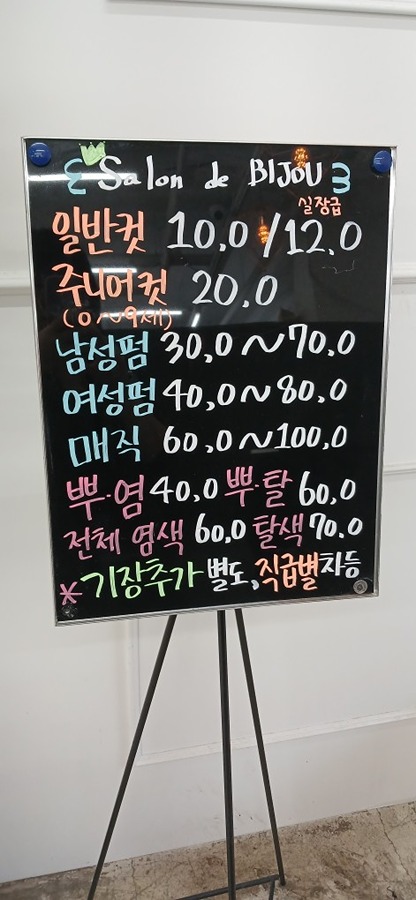 Salon de BIJOU
실장급
일반컷 10.0 / 12.0
주니어컷 20.0
(0~9세)
남성펌 30.0~70.0
여성펌 40.0~80.0
매직 60.0~100.0
뿌·염 40.0 뿌·탈 60.0
전체 염색 60.0 탈색 70.0
* 기장추가 별도, 직급별차등